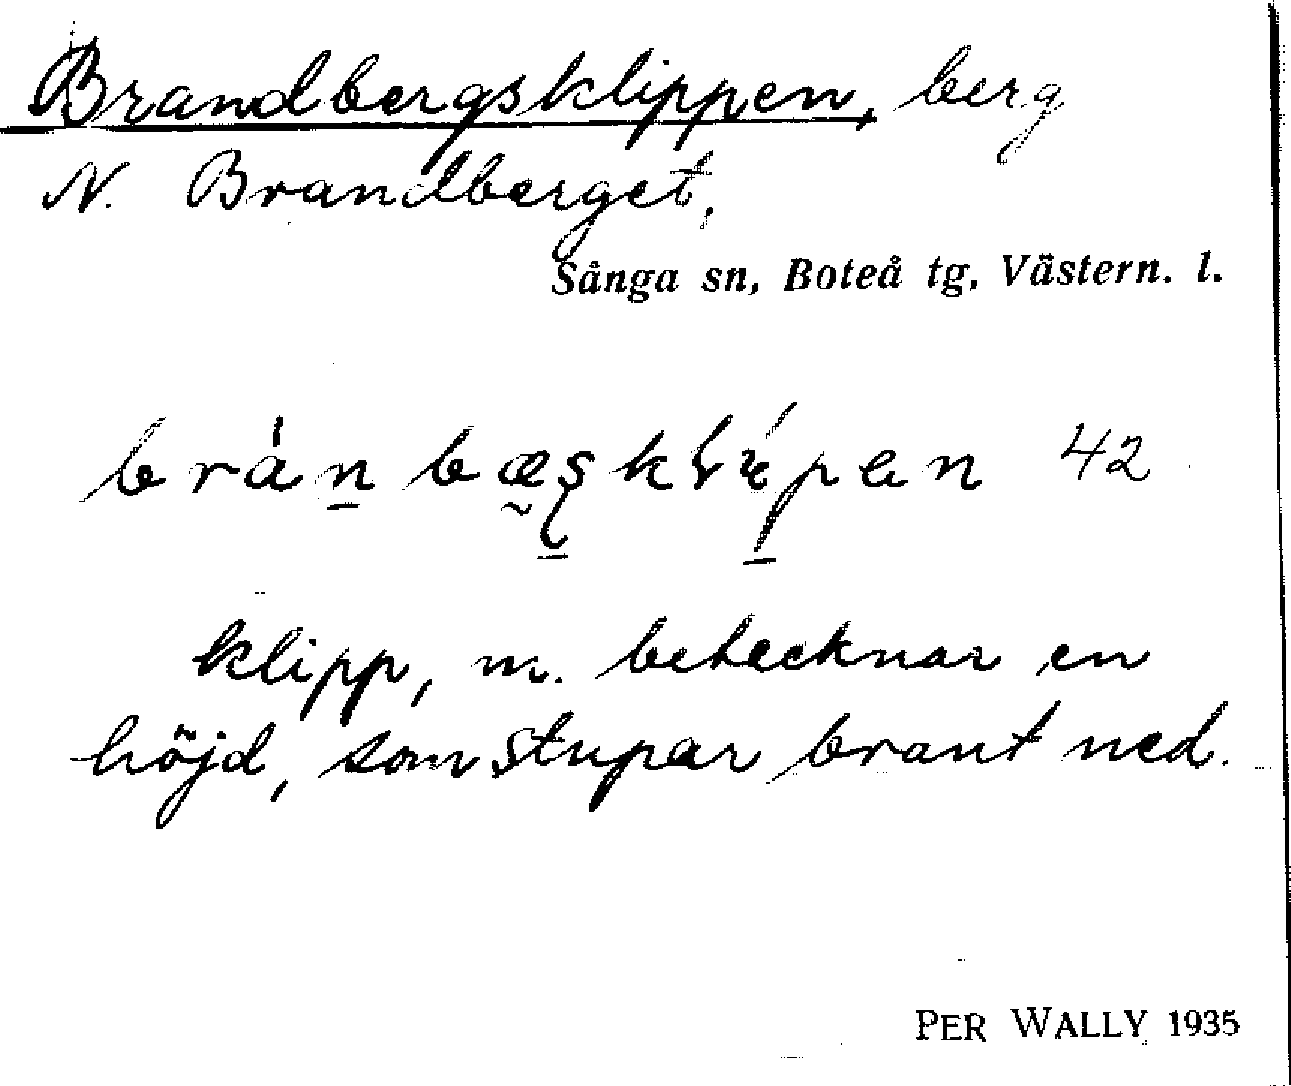 Brandbergsklippen, berg
N. Brandberget,
Sånga sn, Boteå tg, Västern. l.
42
klipp, m. betecknar en
höjd, som stupar brant ned.
PER WALLY 1935